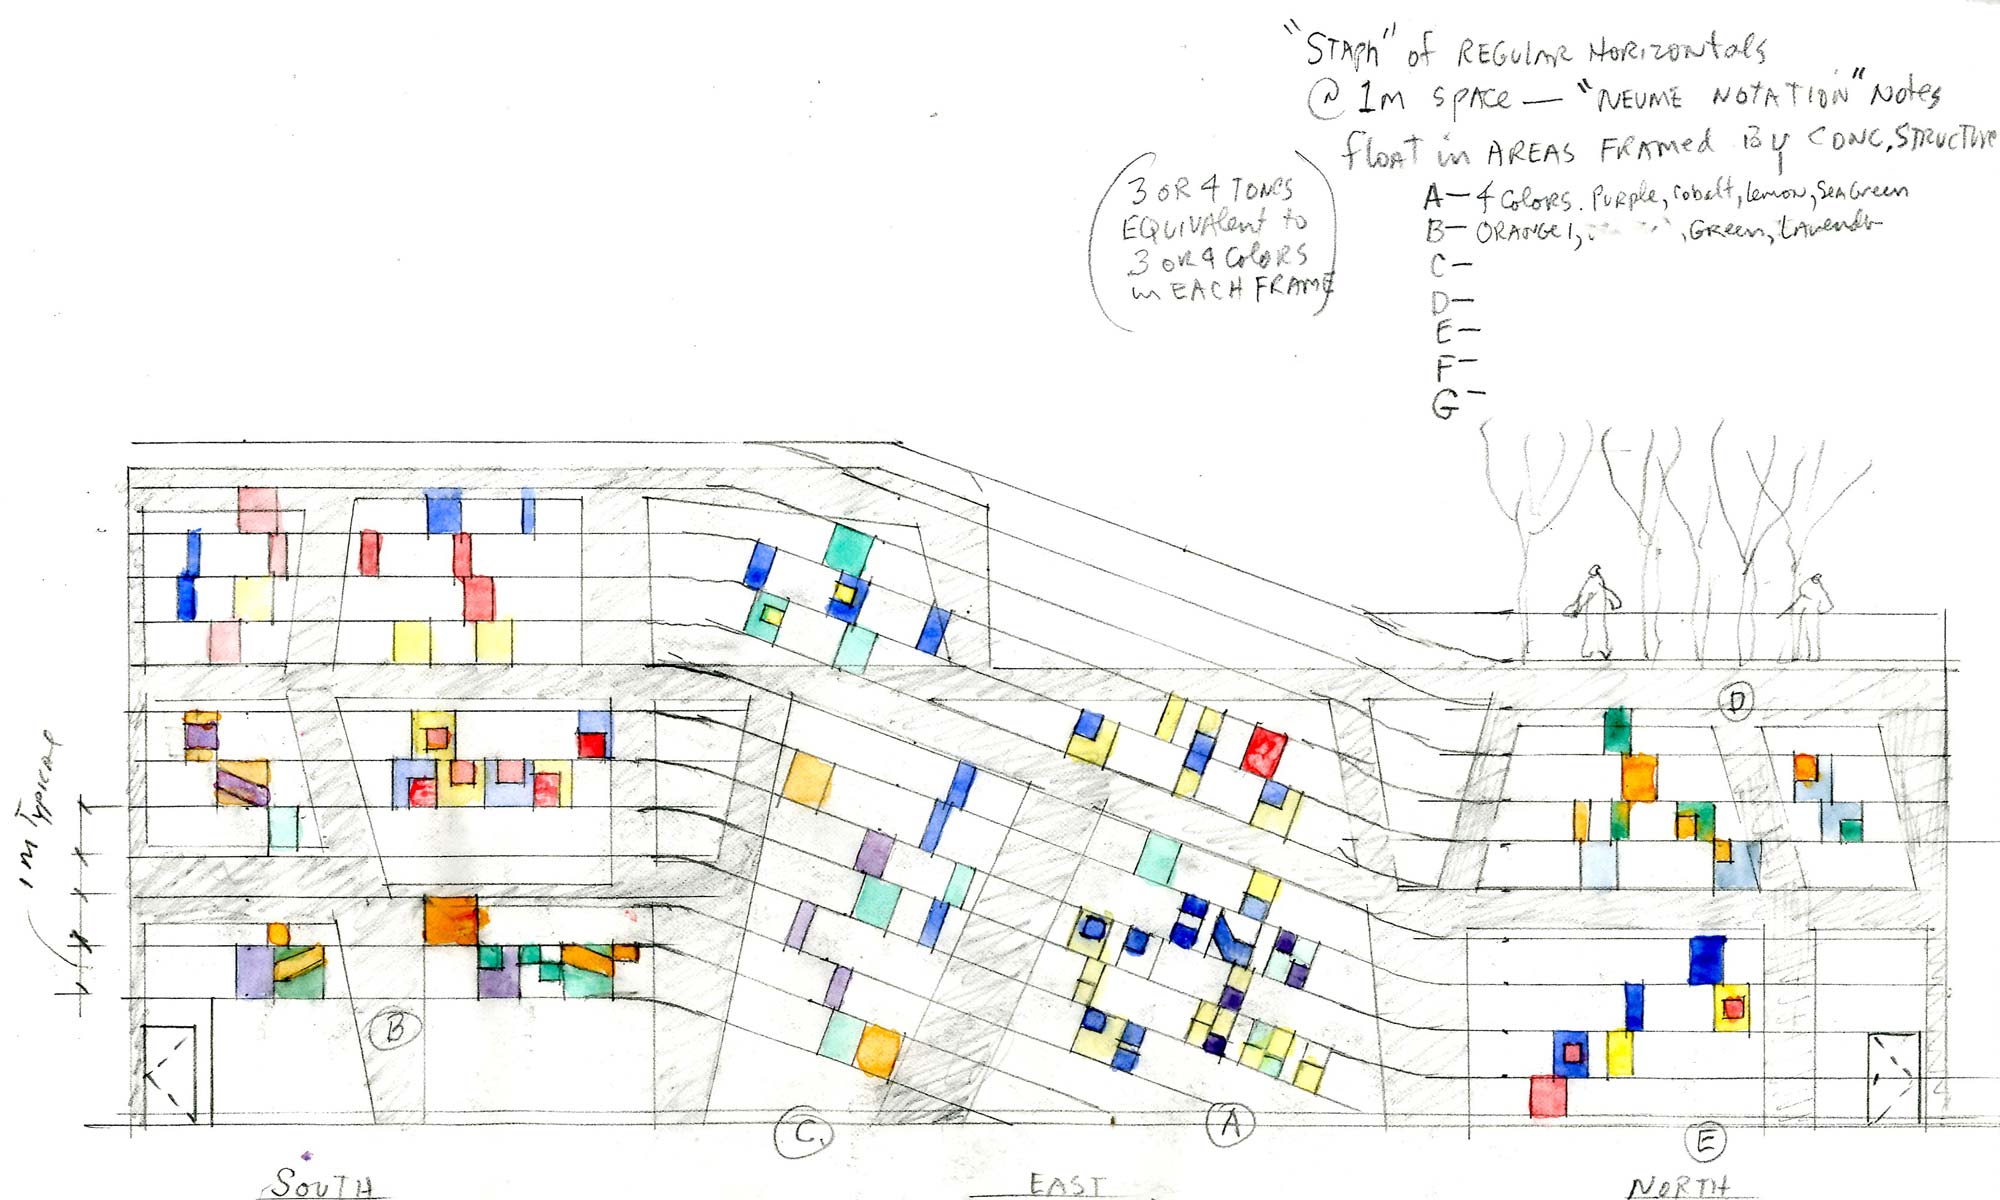 "STAph" of REGULAR HORIZONtals
@ 1m SPACE — "NEUME NOTATION" Notes
float in AREAS FRAMed By CONC. STRUCTURE
A— 4 Colors. Purple, cobalt, lemon, SeaGreen
B— ORANGE 1, , Green, Lavender
C—
D—
E—
F—
G—
3 OR 4 TONES
EQUIVAlent to
3 OR 4 Colors
in EACH FRAME
1M Typical
D
B
C
A
E
SOUTH
EAST
NORTH